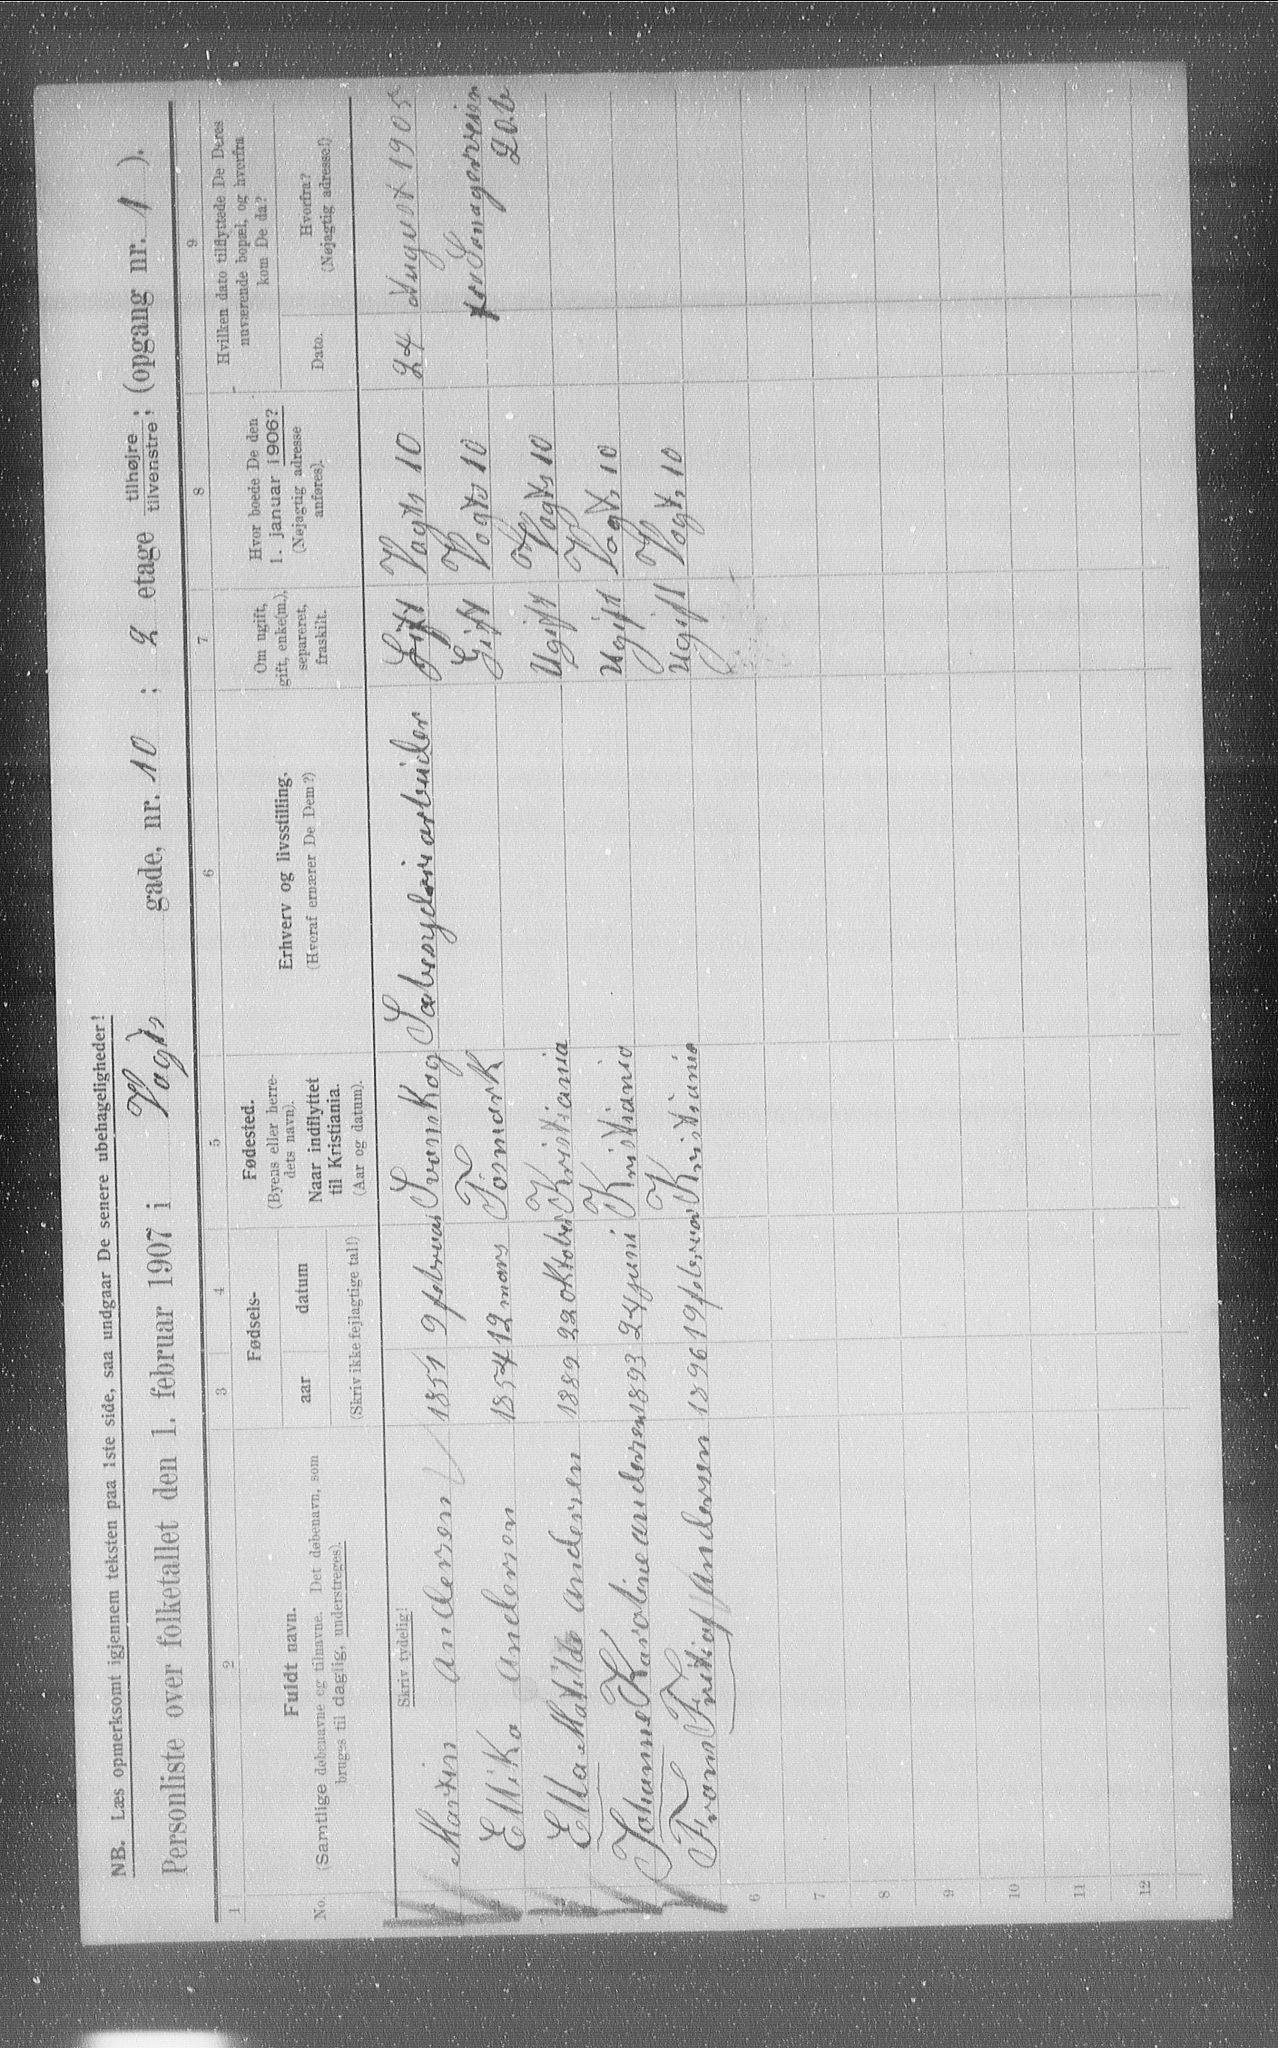 NB. Læs opmerksomt igjennem teksten paa 1ste side, saa undgaar De senere ubehageligheder!
Personliste over folketallet den 1. februar 1907 i Vogts gade, nr. 10 ; 2 etage tilhøjre ; tilvenstre; (opgang nr. 1 ).
1 2 3 4 5 6 7 8 9
No.
Fuldt navn.
(Samtlige døbenavne og tilnavne. Det døbenavn, som
bruges til daglig, understreges).
Fødsels-
aar datum
(Skriv ikke fejlagtige tal!)
Fødested.
(Byens eller herre-
dets navn).
Naar indflyttet
til Kristiania.
(Aar og datum).
Erhverv og livsstilling.
(Hvoraf ernærer De Dem?)
Om ugift,
gift, enke(m.),
separeret,
fraskilt.
Hvor boede De den
1. januar 1906?
(Nøjagtig adresse
anføres).
Hvilken dato tilflyttede De Deres
nuværende bopæl, og hvorfra
kom De da?
Dato.
Hvorfra?
(Nøjagtig adresse!)
Skriv tydelig!
1 Martin Andersen 1851 9 februar Svanskog Sæbesyderiarbeider Gift Vogts 10 24 August 1905
2 Ellika Andersen 1854 12 mars Tösmark Gift Vogts 10
20.b
3 Ella Matilde Andersen 1889 22 oktober Kristiania Ugift Vogts 10
Johanne Karoline andersen 1893 24 juni Kristiania Ugift Vogts 10
Frans Fritiof Andersen 1896 19 februar Kristiania Ugift Vogts 10
6
7
8
9
10
11
12